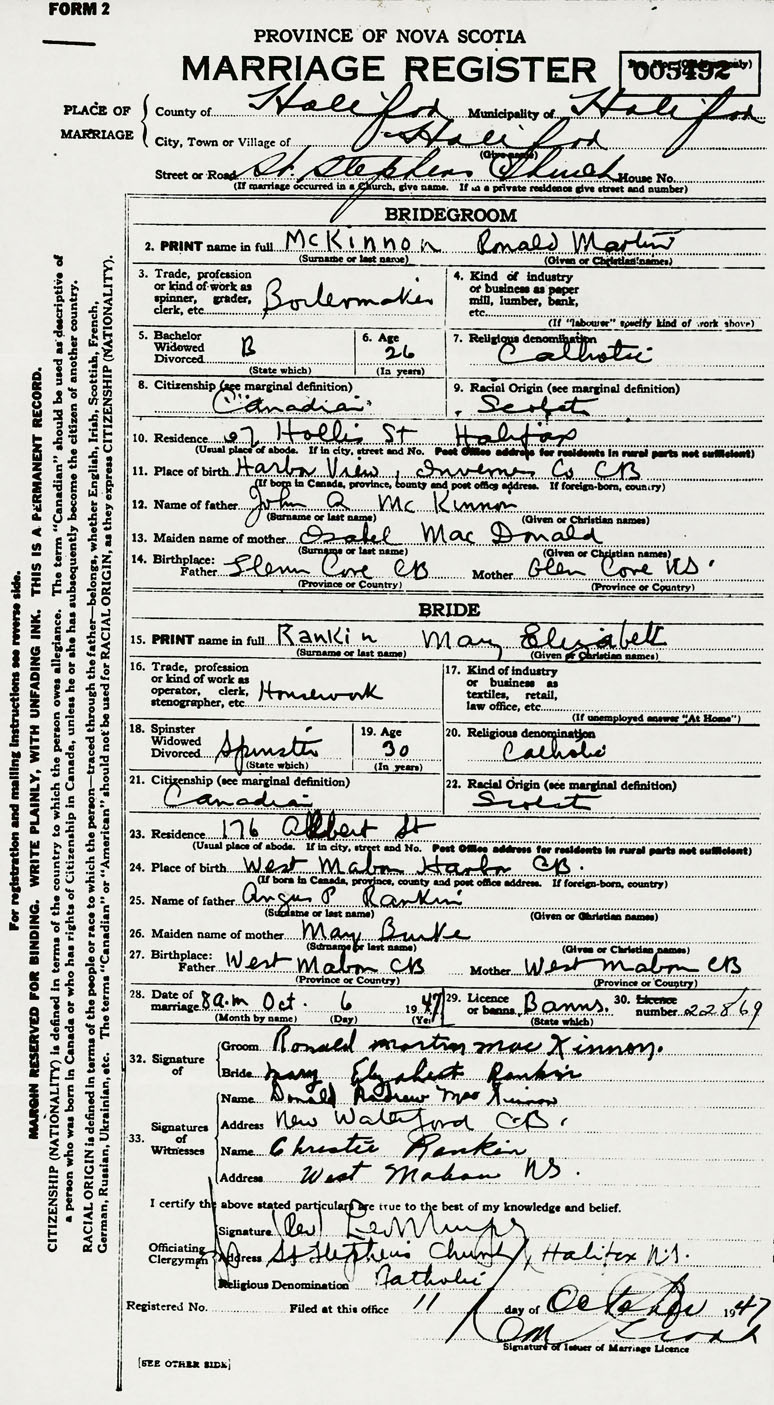 FORM 2
PROVINCE OF NOVA SCOTIA
MARRIAGE REGISTER
005492
PLACE OF MARRIAGE
County of Halifax Municipality of Halifax
City, Town or Village of Halifax
(Give name)
Street or Road St. Stephens Church House No.
(If marriage occurred in a Church, give name. If in a private residence give street and number)
BRIDEGROOM
2. PRINT name in full McKinnon Ronald Martin
(Surname or last name) (Given or Christian names)
3. Trade, profession or kind of work as spinner, grader, clerk, etc. Boilermaker
4. Kind of industry or business as paper mill, lumber, bank, etc.
(If "labourer" specify kind of work above)
5. Bachelor Widowed Divorced B
(State which)
6. Age 26
(In years)
7. Religious denomination Catholic
8. Citizenship (see marginal definition) Canadian
9. Racial Origin (see marginal definition) Scotch
10. Residence 07 Hollis St Halifax
(Usual place of abode. If in city, street and No. Post Office address for residents in rural parts not sufficient)
11. Place of birth Harbor View, Inverness Co CB
(If born in Canada, province, county and post office address. If foreign-born, country)
12. Name of father John A McKinnon
(Surname or last name) (Given or Christian names)
13. Maiden name of mother Isabel Mac Donald
(Surname or last name) (Given or Christian names)
14. Birthplace: Father Glenn Cove CB Mother Glen Cove NS
(Province or Country) (Province or Country)
BRIDE
15. PRINT name in full Rankin Mary Elizabeth
(Surname or last name) (Given or Christian names)
16. Trade, profession or kind of work as operator, clerk, stenographer, etc. Housework
17. Kind of industry or business as textiles, retail, law office, etc.
(If unemployed answer "At Home")
18. Spinster Widowed Divorced Spinster
(State which)
19. Age 30
(In years)
20. Religious denomination Catholic
21. Citizenship (see marginal definition) Canadian
22. Racial Origin (see marginal definition) Scotch
23. Residence 176 Albert St
(Usual place of abode. If in city, street and No. Post Office address for residents in rural parts not sufficient)
24. Place of birth West Mabou Harbor CB.
(If born in Canada, province, county and post office address. If foreign-born, country)
25. Name of father Angus P Rankin
(Surname or last name) (Given or Christian names)
26. Maiden name of mother Mary Burke
(Surname or last name) (Given or Christian names)
27. Birthplace: Father West Mabou CB Mother West Mabou CB
(Province or Country) (Province or Country)
28. Date of marriage 8 a.m Oct. 6 1947
(Month by name) (Day) (Year)
29. Licence or banns Banns.
(State which)
30. Licence number 22869
32. Signature of
Groom Ronald Martin Mac Kinnon.
Bride Mary Elizabeth Rankin
33. Signatures of Witnesses
Name Donald Andrew Mac Kinnon
Address New Waterford C.B.
Name Christie Rankin
Address West Mabou NS.
I certify the above stated particulars are true to the best of my knowledge and belief.
Officiating Clergyman
Signature (Rev)
Address St Stephens Church, Halifax N.S.
Religious Denomination Catholic
Registered No. Filed at this office 11 day of October 1947
Signature of Issuer of Marriage Licence
[SEE OTHER SIDE]
For registration and mailing instructions see reverse side.
MARGIN RESERVED FOR BINDING. WRITE PLAINLY, WITH UNFADING INK. THIS IS A PERMANENT RECORD.
CITIZENSHIP (NATIONALITY) is defined in terms of the country to which the person owes allegiance. The term "Canadian" should be used as descriptive of
a person who was born in Canada or who has rights of Citizenship in Canada, unless he or she has subsequently become the citizen of another country,
RACIAL ORIGIN is defined in terms of the people or race to which the person—traced through the father—belongs, whether English, Irish, Scottish, French,
German, Russian, Ukrainian, etc. The terms "Canadian" or "American" should not be used for RACIAL ORIGIN, as they express CITIZENSHIP (NATIONALITY).